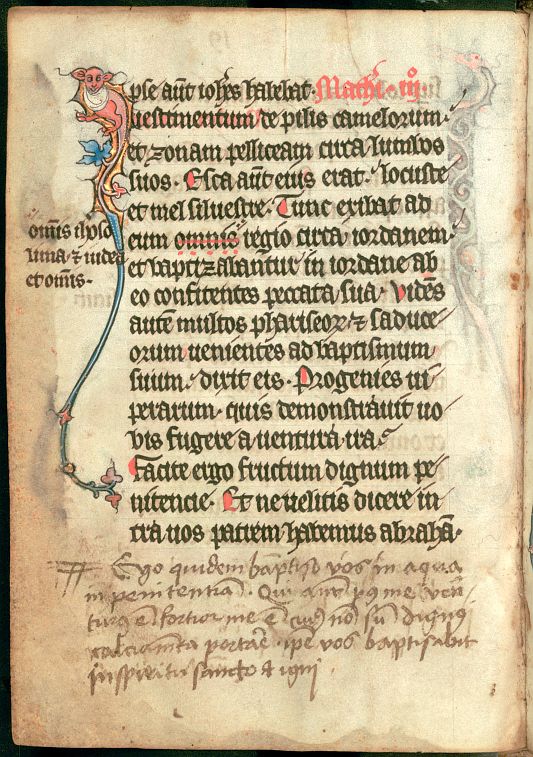 Ipse aūt ioh̄es habebat. Mathi. iijº.
uestimentum de pilis camelorum
et zonam pelliceam circa lumbos
suos. Esca aūt eius erat. locuste
et mel siluestre. Tunc exibat ad
omīs iheroso
eum omnis regio circa iordanem.
lima. ⁊ iudea
et baptizabantur in iordane ab
et om̄s.
eo confitentes peccata sua. Vidēs
autē multos phariseor̄. ⁊ saduce
orum uenientes ad baptismum
suum. dixit eis. Progenies ui
perarum. quis demonstrauit uo
bis fugere a uentura ira.
Facite ergo fructum dignum pe
nitencie. Et ne uelitis dicere in
tra uos patrem habemus abrahā.
Ego quidem baptiso vos in aqua
in penitentiā. Qui aut̄ p9 me ven
turꝯ ē fortior me ē cuiꝯ nō sū dignꝯ
calciamēta portare ip̄e vos baptisabit
in spiritu sancto & igni.